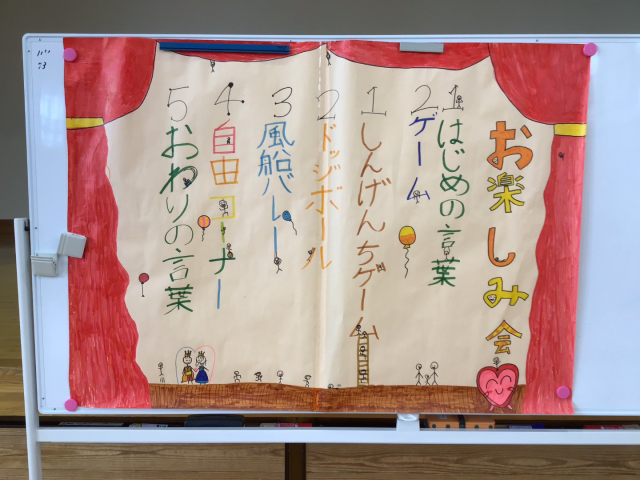 お楽しみ会
1はじめの言葉
2ゲーム
1しんげんちゲーム
2ドッジボール
3風船バレー
4自由コーナー
5おわりの言葉